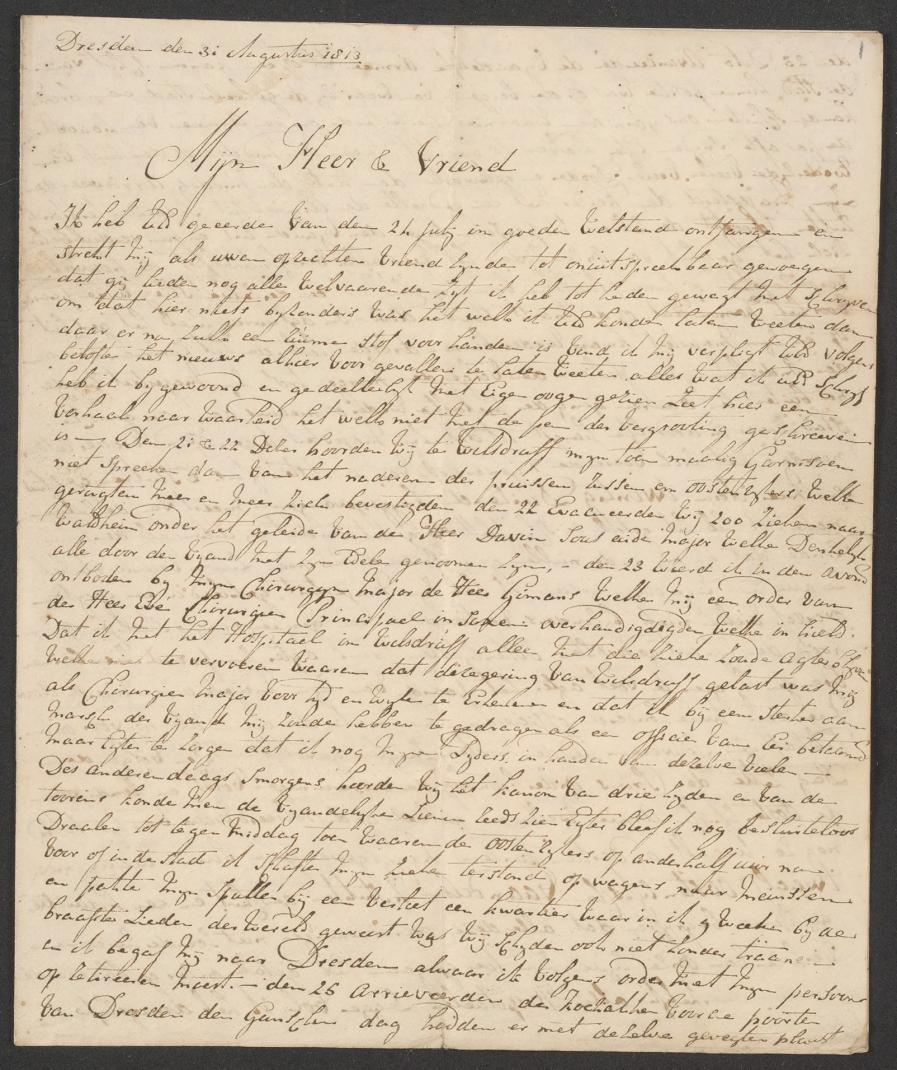 1
Dresden den 31 Augustus 1813
Mijn Heer & Vriend
Ik heb UEd geeerde van den 24 july in goeden welstand ontfangen en
strekt mij als uwen opregten vriend zynde tot onuitspreekbaar genoegen
dat gij lieden nog alle welvaarende zyt ik heb tot heden gewagt met schryven
om dat hier niets byzonders was het welk ik UEd konde laten weeten dan
daar er nu zulk een ruime stof voor handen is vond ik mij verpligt UEd volgens
belofte het nieuws alhier voorgevallen te laten weeten alles wat ik UEd schryf
heb ik bygewoond en gedeeltelyk met eige oogen gezien ziet hier een
verhaal naar waarheid het welk niet met de pen der vergrooting geschreeven
is — Den 21 & 22 Dezer hoorden wij te Wilsdruff myn toen maalig Garnisoen
niet spreeken dan van het naderen der pruissen russen en oostenrykers welke
gerugten meer en meer zich bevestigden den 22 Evacueerden wij 200 zieken naar
Waldheim onder het geleide van de Heer Davin Sous aide major welke Denzelfden
alle door den vyand met zyn Edele genoomen zyn, — den 23 wierd ik in den avond
ontboden by myn Chirurgyn major de Heer Gimans welke mij een order van
der Heer Eve Chirurgien Principael in Saxen overhandigdigden welke in hield.
Dat ik met het Hospitael in Wilsdruff alleen met die zieke zoude agterblyven
welke niet te vervoeren waaren dat de regering van Wilsdruff gelast was mij
als Chirurgien major voor tyd en wyle te Erkennen en dat ik bij een sterker aan
marsch der vyandt mij zoude hebben te gedragen als een officier van Eer betaamd
maar Egter te zorgen dat ik nog myne Lyders in handen van dezelve vielen —
Des anderendaags smorgens hoorden wij het kanon van drie zyden en van de
toorens konde men de vyandelyke Linien reeds zien Egter bleef ik nog besluiteloos
Draalen tot tegen middag toen waaren de oostenrykers op anderhalf uur na
voor of in de stadt ik schafte myn zieke terstond op wagens naar Meinssen
en pakte myn spullen bij een verliet een kwartier waar in ik 9 weeken by de
braafste Lieden der wereld geweest was wij scheyden ook niet zonder traanen
en ik begaf mij naar Dresden alwaar ik volgens order met myn persoon
op retireeren moest. — den 26 arriveerden de kozakken voor de poorten
van Dresden den Ganschen dag hadden er met dezelve gevegten plaats